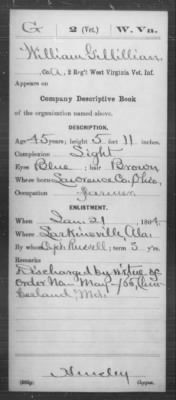 G 2 (Vet.) W. Va.
William Gillilian
Co. A, 2 Reg't West Virginia Vet. Inf.
Appears on
Company Descriptive Book
of the organization named above.
DESCRIPTION.
Age 45 years; height 5 feet 11 inches.
Complexion Light
Eyes Blue; hair Brown
Where born Lawrence Co. Ohio,
Occupation Farmer
ENLISTMENT.
When Jan 21, 1864.
Where Larkinsville, Ala.
By whom Capt. Russell; term 3 y'rs.
Remarks
Discharged by virtue of
Order No May /65, Cum
berland, Md.
Copyist.